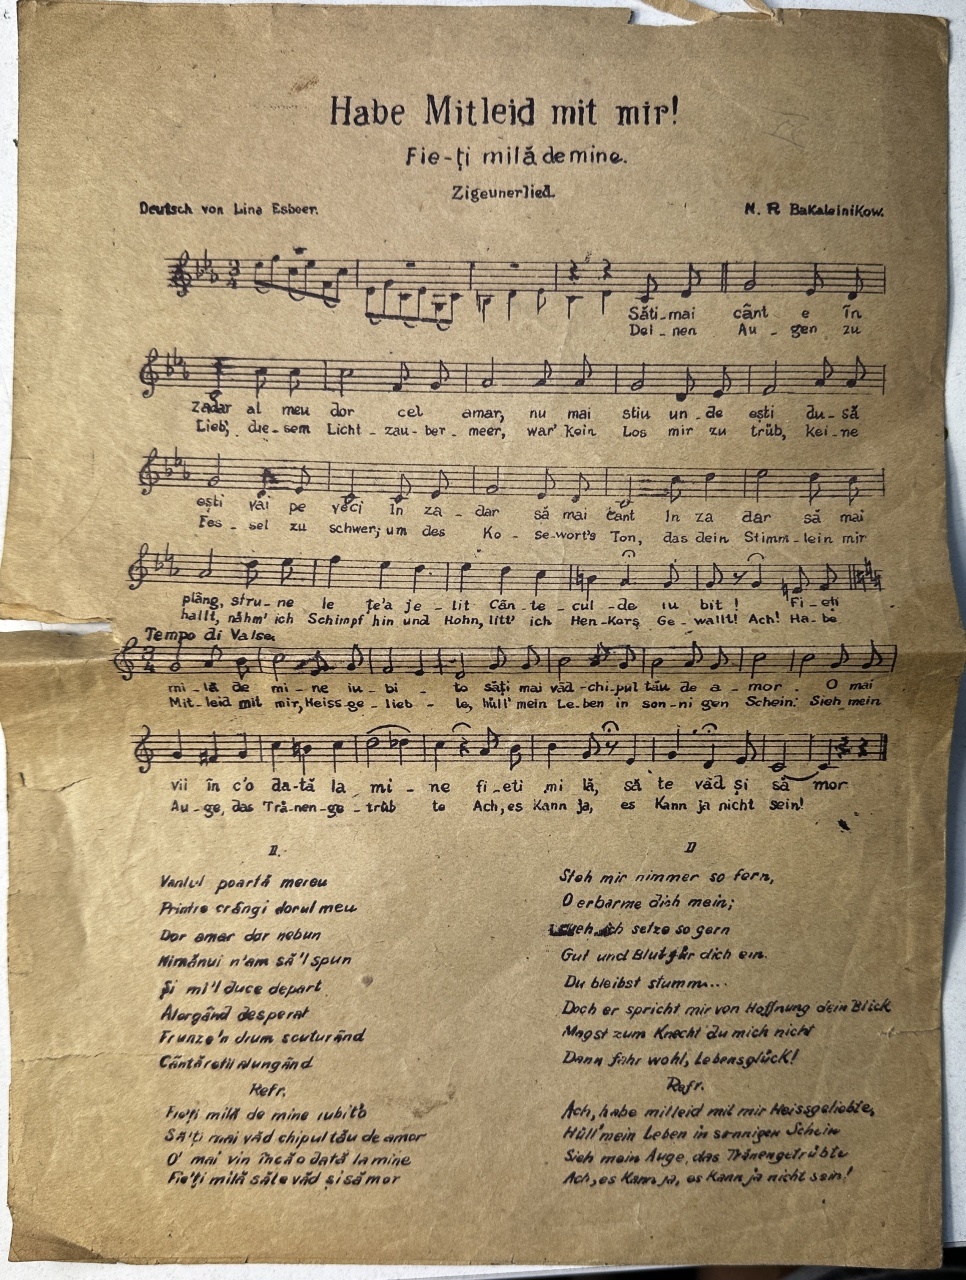 Habe Mitleid mit mir!
Fie-ți milă de mine.
Zigeunerlied.
Deutsch von Lina Esbeer.
N. R. Bakaleinikow.
Săti-mai cânt e în
Dei-nen Au-gen zu
zadar al meu dor cel amar, nu mai stiu un-de ești du-să
Lieb', die-sem Licht-zau-ber-meer, war' kein Los mir zu trüb, kei-ne
ești vai pe veci In za-dar să mai cant In za dar să mai
Fes-sel zu schwer; um des Ko-se-wort's Ton, das dein Stimm-lein mir
plâng, stru-ne le te'a je-lit Cân-te-cul-de iu bit! Fi-eti
hallt, nähm' ich Schimpf hin und Hohn, litt' ich Hen-kers Ge-wallt! Ach! Ha-be
Tempo di Valse.
mi-lă de mi-ne iu-bi-to săți mai văd-chi-pul tău de a-mor. O mai
Mit-leid mit mir, Heiss-ge-lieb-te, hüll' mein Le-ben in son-ni gen Schein. Sieh mein
vii în c'o da-tă la mi-ne fi-eti mi lă, să te văd și să mor
Au-ge, das Trä-nen-ge-trüb te Ach, es kann ja, es kann ja nicht sein!
II.
Vantul poartă mereu
Printre crângi dorul meu
Dor amar dor nebun
Nimănui n'am să'l spun
Și mi'l duce depart
Alergând desperat
Frunze'n drum scuturând
Cântăretii alungând
Refr.
Fie'ți milă de mine iubito
Să'ți mai văd chipul tău de amor
O' mai vin încă o dată la mine
Fie'ți milă săte văd și să mor
II
Steh mir nimmer so fern,
O erbarme dich mein;
ich setze so gern
Gut und Blut für dich ein.
Du bleibst stumm...
Doch er spricht mir von Hoffnung dein Blick
Magst zum Knecht du mich nicht
Dann fahr wohl, Lebensglück!
Refr.
Ach, habe mitleid mit mir Heissgeliebte,
Hüll' mein Leben in sonnigen Schein
Sieh mein Auge, das Tränengetrübte
Ach, es kann ja, es kann ja nicht sein!